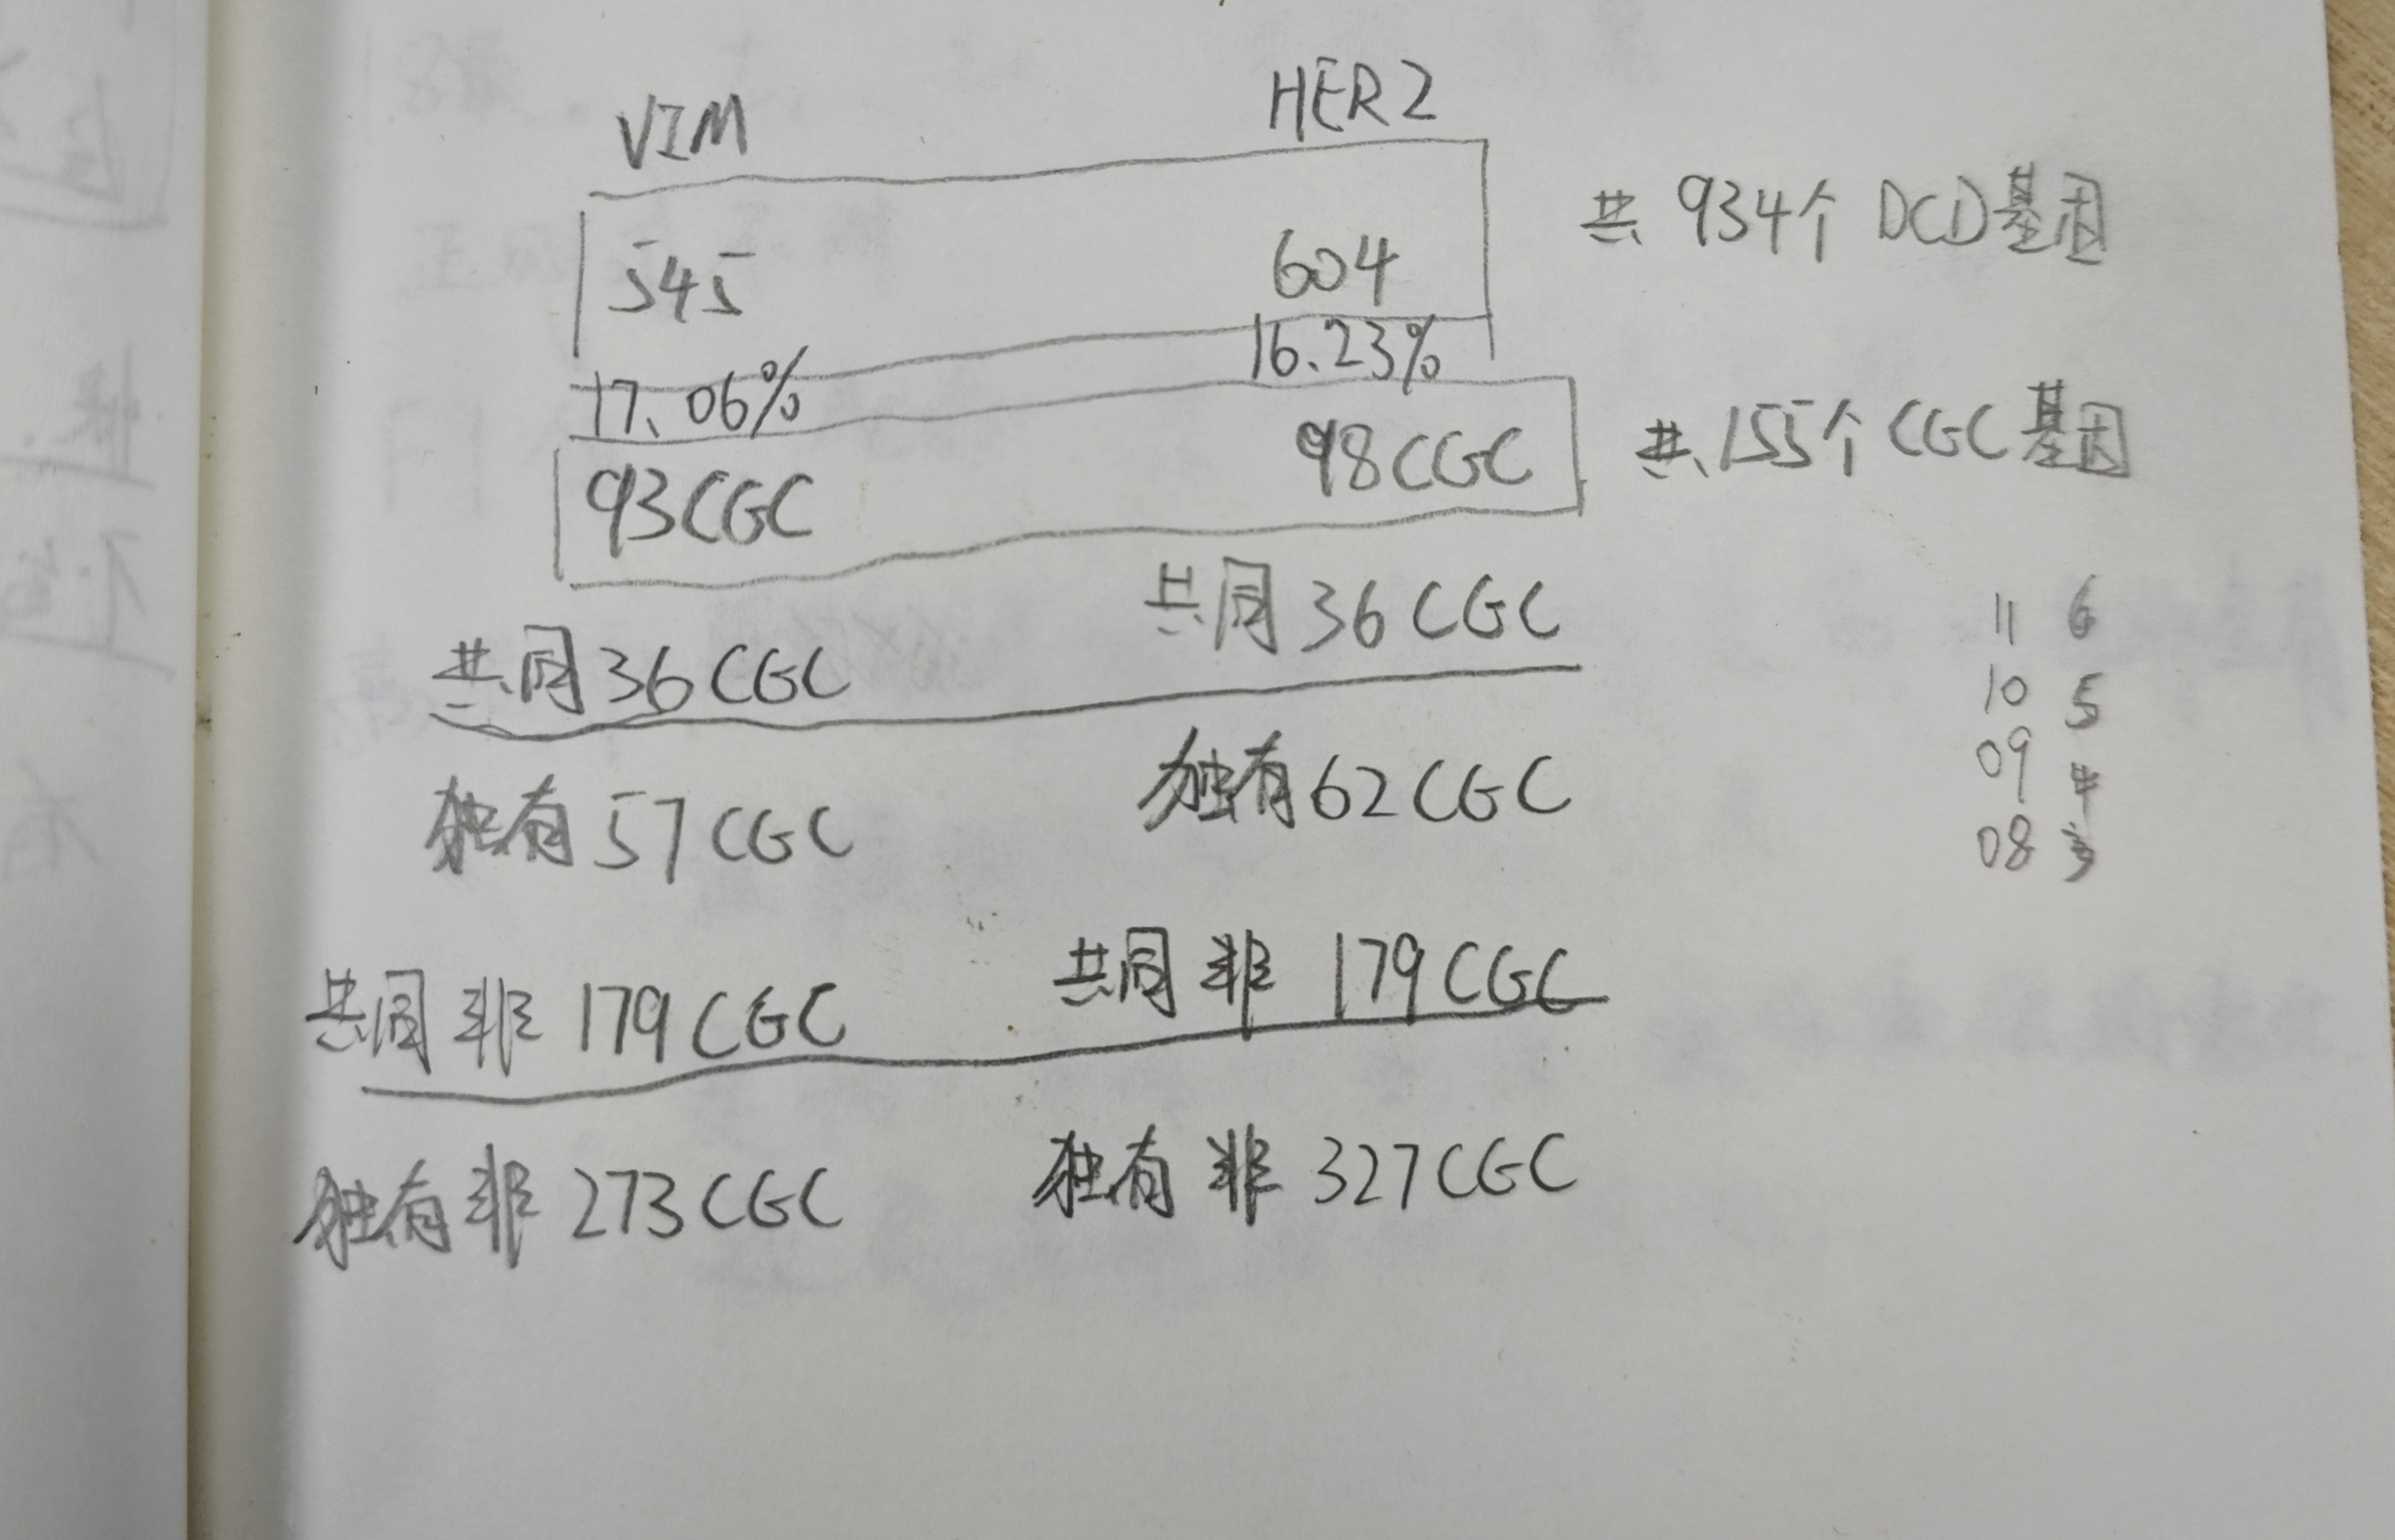 VIM HER2
545 604 共 934个 DCD基因
17.06% 16.23%
93CGC 98CGC 共 155个 CGC 基因
共同 36 CGC 共同 36 CGC
独有 57 CGC 独有 62 CGC
共同 非 179 CGC 共同 非 179 CGC
独有 非 273 CGC 独有 非 327 CGC
11 6
10 5
09 4
08 3